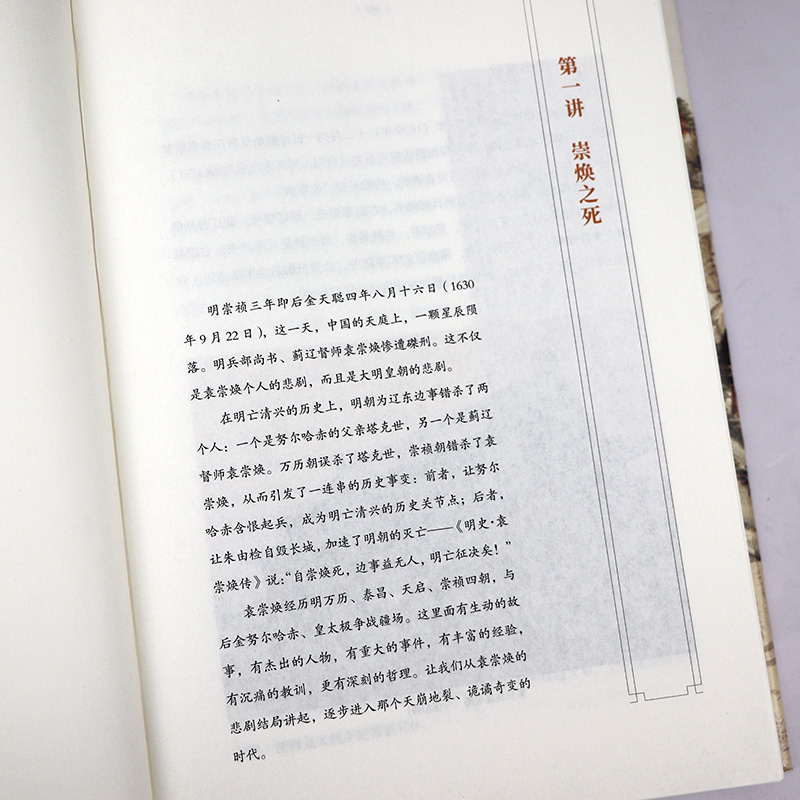 第一讲 崇焕之死
明崇祯三年即后金天聪四年八月十六日（1630
年9月22日），这一天，中国的天庭上，一颗星辰陨
落。明兵部尚书、蓟辽督师袁崇焕惨遭磔刑。这不仅
是袁崇焕个人的悲剧，而且是大明皇朝的悲剧。
在明亡清兴的历史上，明朝为辽东边事错杀了两
个人：一个是努尔哈赤的父亲塔克世，另一个是蓟辽
督师袁崇焕。万历朝误杀了塔克世，崇祯朝错杀了袁
崇焕，从而引发了一连串的历史事变：前者，让努尔
哈赤含恨起兵，成为明亡清兴的历史关节点；后者，
让朱由检自毁长城，加速了明朝的灭亡——《明史·袁
崇焕传》说：“自崇焕死，边事益无人，明亡征决矣！”
袁崇焕经历明万历、泰昌、天启、崇祯四朝，与
后金努尔哈赤、皇太极争战疆场。这里面有生动的故
事，有杰出的人物，有重大的事件，有丰富的经验，
有沉痛的教训，更有深刻的哲理。让我们从袁崇焕的
悲剧结局讲起，逐步进入那个天崩地裂、诡谲奇变的
时代。